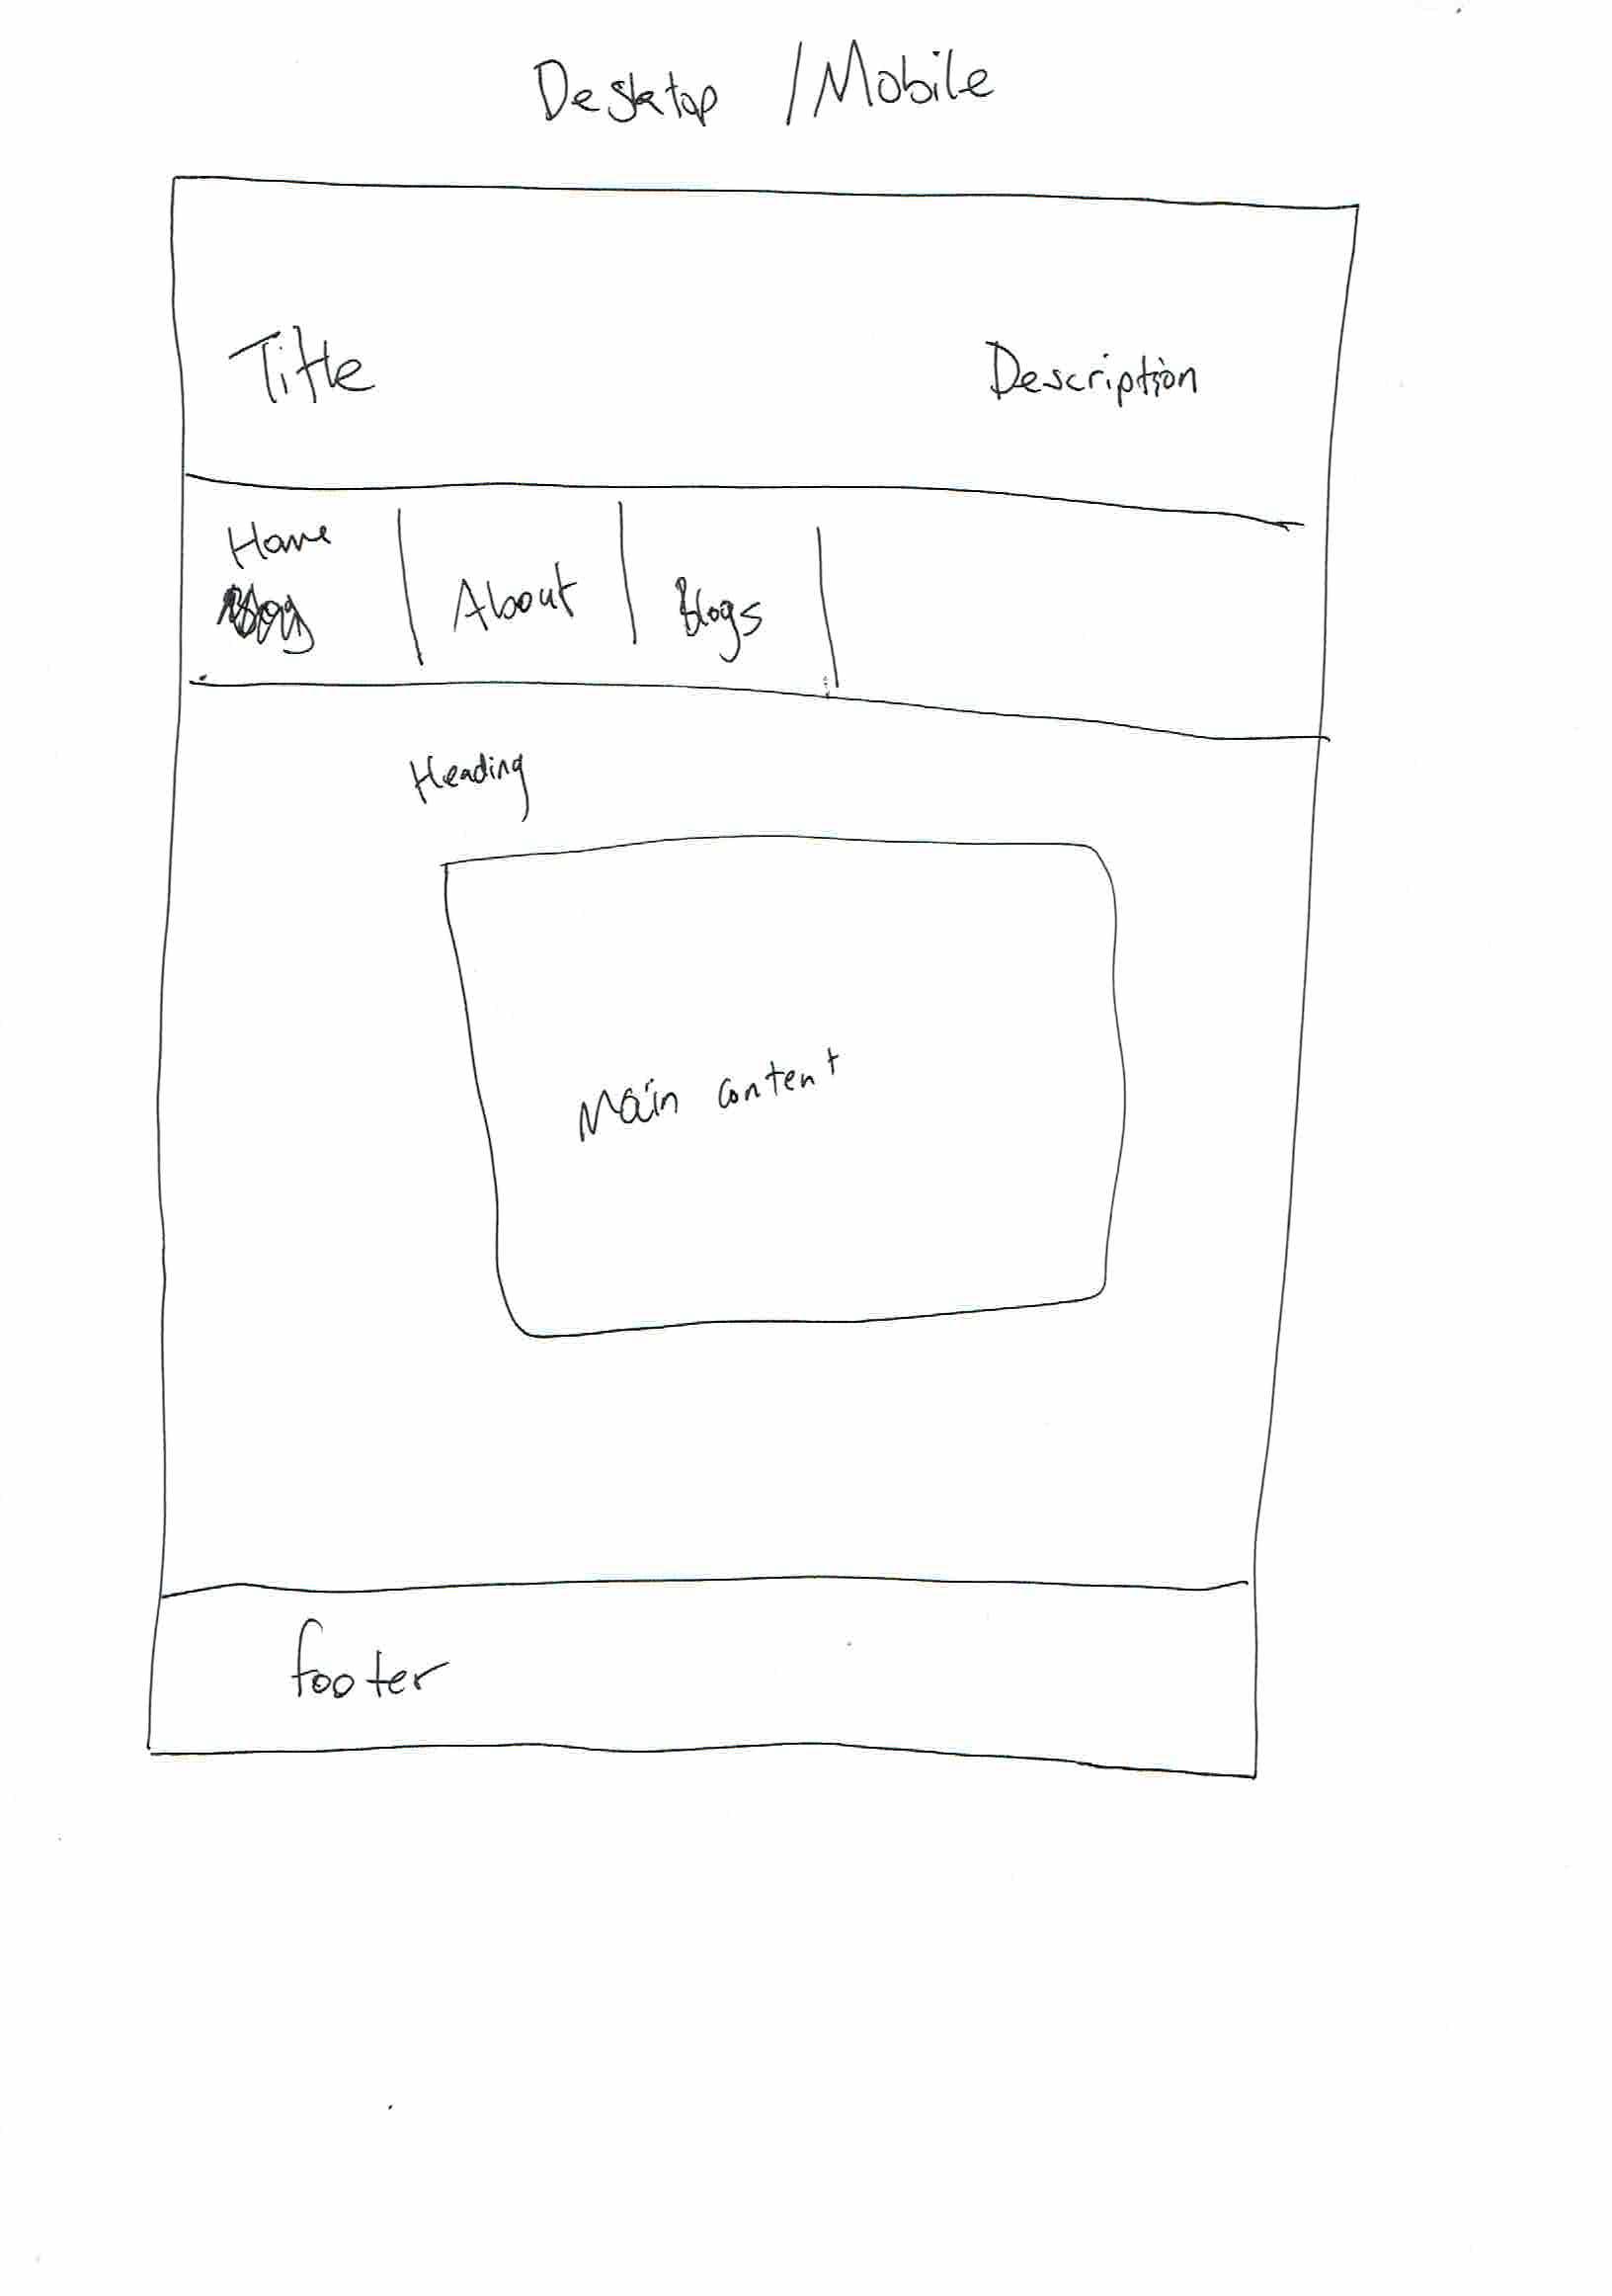 Desktop / Mobile
Title Description
Home
About Blogs
Heading
Main content
footer